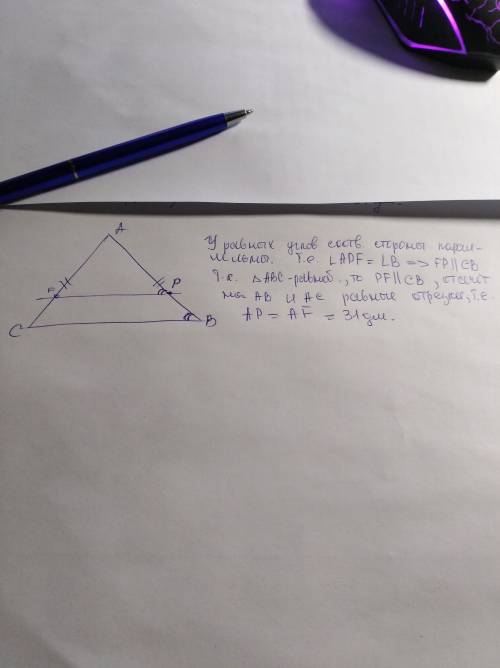 A
F
P
C
B
У равных углов соотв. стороны парал-
лельны. Т.е. ∠APF = ∠B => FP||CB
Т.к. △ABC-равноб., то PF||CB, отсечёт
на AB и AC равные отрезки, т.е.
AP = AF = 31дм.